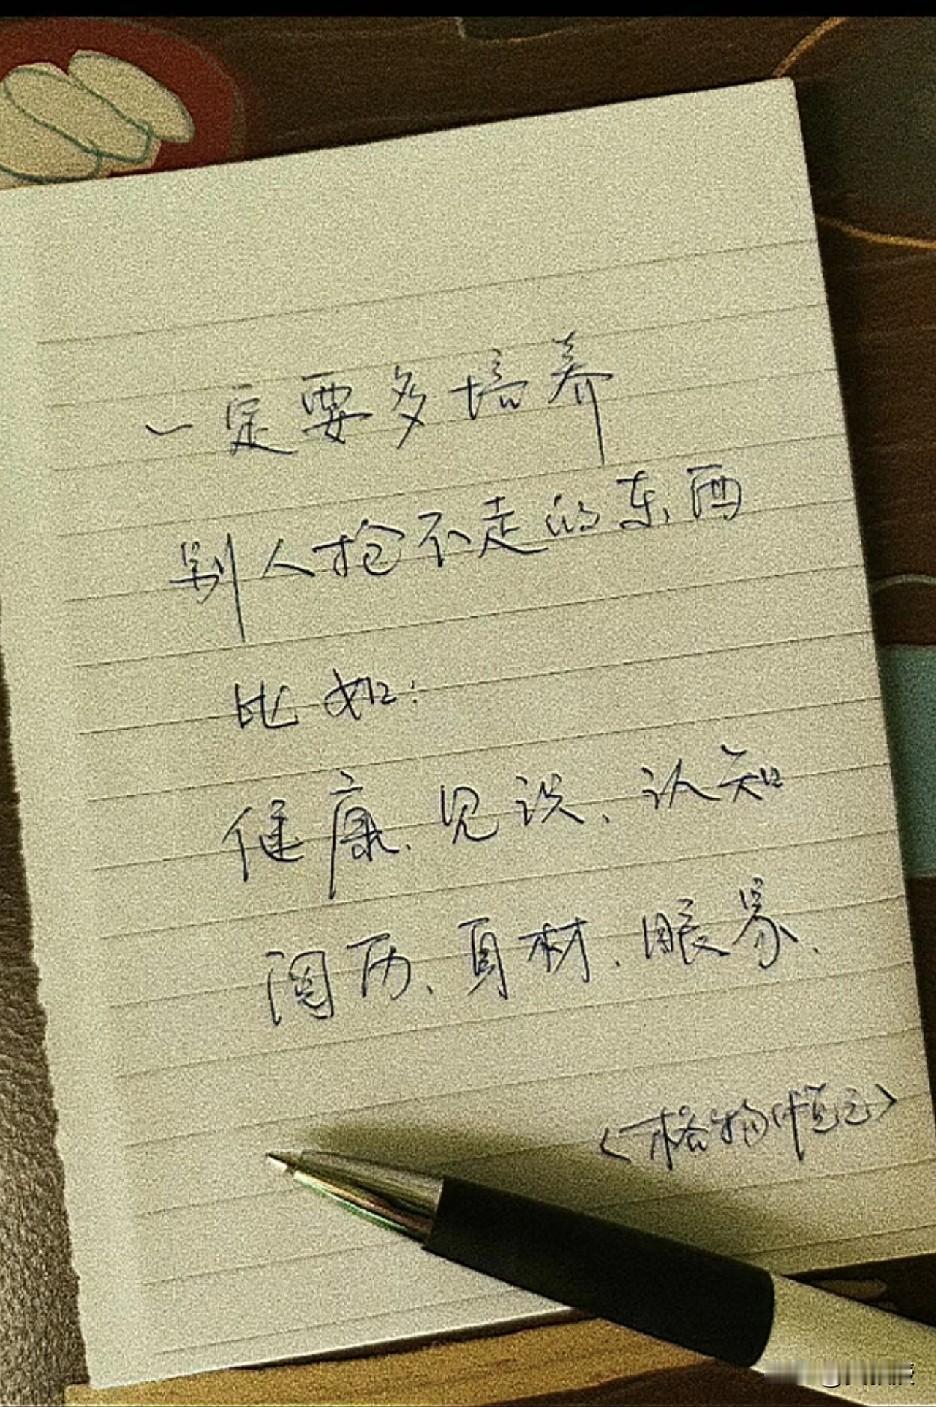 一定要多培养
别人抢不走的东西
比如：
健康、见识、认知
阅历、身材、眼界、